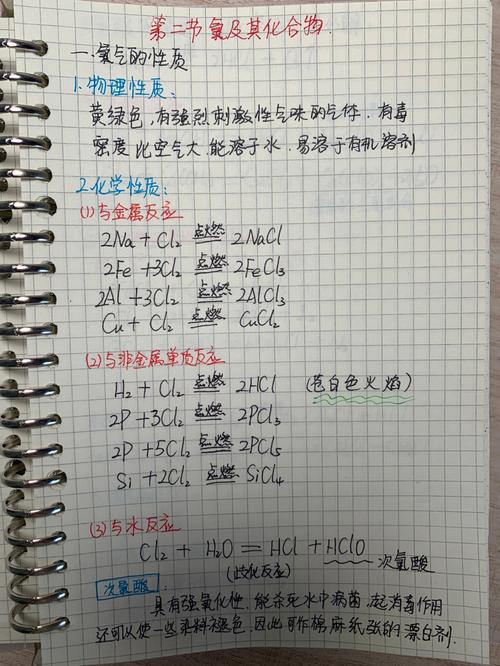 第二节氯及其化合物.
一.氯气的性质
1.物理性质:
黄绿色,有强烈刺激性气味的气体.有毒
密度比空气大.能溶于水.易溶于有机溶剂
2.化学性质:
(1)与金属反应
2Na + Cl₂ 点燃 2NaCl
2Fe +3Cl₂ 点燃 2FeCl₃
2Al +3Cl₂ 点燃 2AlCl₃
Cu + Cl₂ 点燃 CuCl₂
(2)与非金属单质反应
H₂ + Cl₂ 点燃 2HCl (苍白色火焰)
2P +3Cl₂ 点燃 2PCl₃
2P +5Cl₂ 点燃 2PCl₅
Si +2Cl₂ 点燃 SiCl₄
(3)与水反应
Cl₂ + H₂O = HCl + HClO 次氯酸
(歧化反应)
次氯酸:
具有强氧化性.能杀死水中病菌,起消毒作用
还可以使一些染料褪色.因此可作棉麻纸张的漂白剂.